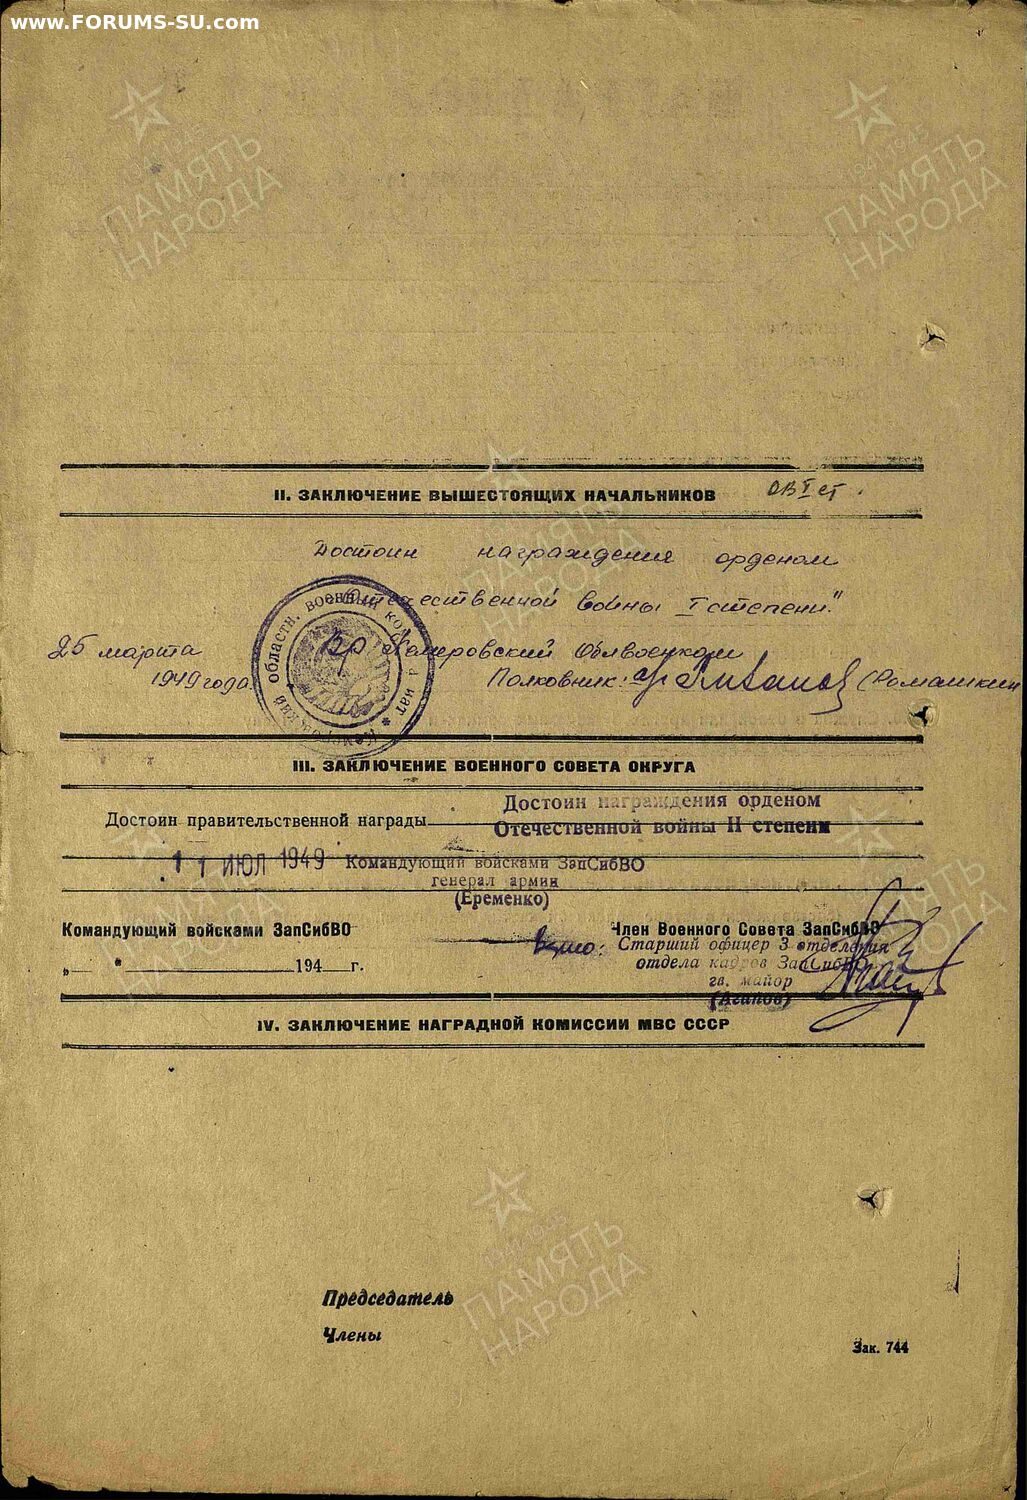 www.FORUMS-SU.com
1941-1945
ПАМЯТЬ
НАРОДА
1941-1945
ПАМЯТЬ
НАРОДА
II. ЗАКЛЮЧЕНИЕ ВЫШЕСТОЯЩИХ НАЧАЛЬНИКОВ ОВ I ст.
Достоин награждения орденом
Отечественной войны I степени."
25 марта Вр Кемеровский Облвоенком
1949 года. Полковник: (Ромашкин
областн. военный
III. ЗАКЛЮЧЕНИЕ ВОЕННОГО СОВЕТА ОКРУГА
Достоин награждения орденом
Достоин правительственной награды
Отечественной войны II степени
11 ИЮЛ 1949 Командующий войсками ЗапСибВО
генерал армии
(Еременко)
Командующий войсками ЗапСибВО Член Военного Совета ЗапСибВО
Верно: Старший офицер 3 отделения
„ " 194 г. отдела кадров ЗапСибВО
гв. майор
(Агапов)
IV. ЗАКЛЮЧЕНИЕ НАГРАДНОЙ КОМИССИИ МВС СССР
1941-1945
ПАМЯТЬ
НАРОДА
Председатель
Члены
Зак. 744